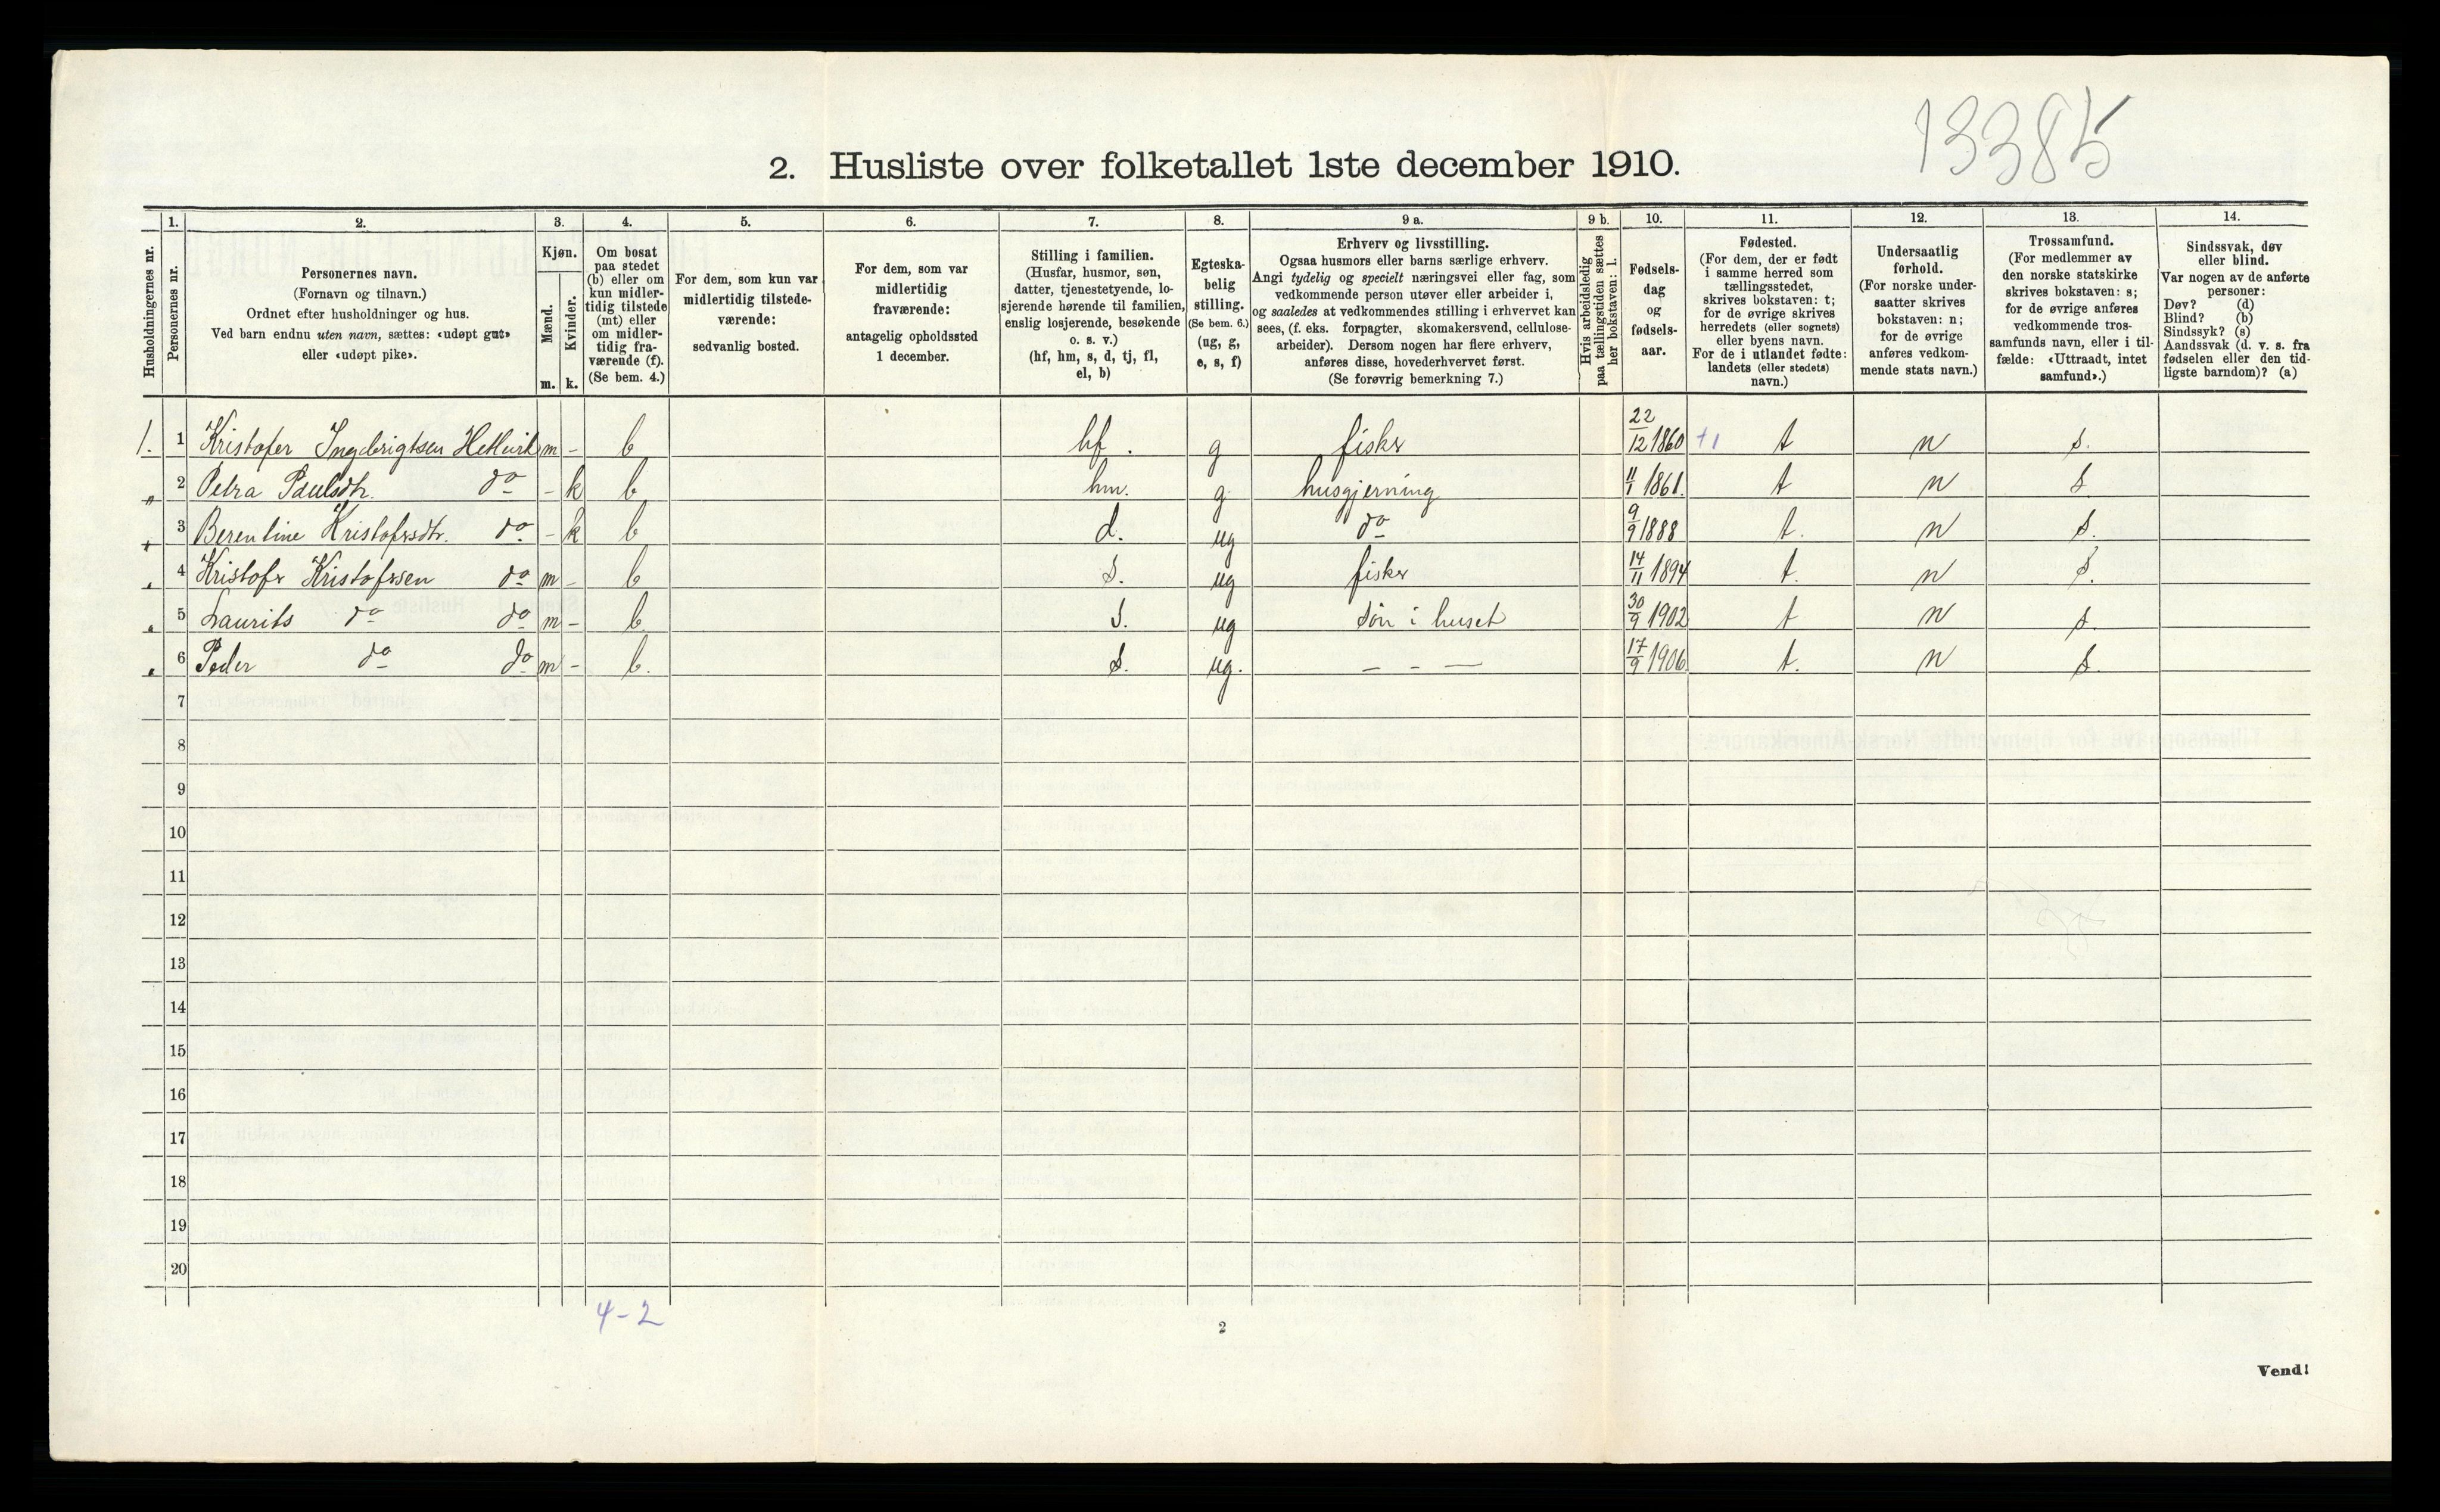 13385
2. Husliste over folketallet 1ste december 1910.
Husholdningernes nr.
1.
Personernes nr.
2.
Personernes navn.
(Fornavn og tilnavn.)
Ordnet efter husholdninger og hus.
Ved barn endnu uten navn, sættes: «udøpt gut»
eller «udøpt pike».
3.
Kjøn.
Mænd.
Kvinder.
m. k.
4.
Om bosat
paa stedet
(b) eller om
kun midler-
tidig tilstede
(mt) eller
om midler-
tidig fra-
værende (f).
(Se bem. 4.)
5.
For dem, som kun var
midlertidig tilstede-
værende:
sedvanlig bosted.
6.
For dem, som var
midlertidig
fraværende:
antagelig opholdssted
1 december.
7.
Stilling i familien.
(Husfar, husmor, søn,
datter, tjenestetyende, lo-
sjerende hørende til familien,
enslig losjerende, besøkende
o. s. v.)
(hf, hm, s, d, tj, fl,
el, b)
8.
Egteska-
belig
stilling.
(Se bem. 6.)
(ug, g,
e, s, f)
9 a.
Erhverv og livsstilling.
Ogsaa husmors eller barns særlige erhverv.
Angi tydelig og specielt næringsvei eller fag, som
vedkommende person utøver eller arbeider i,
og saaledes at vedkommendes stilling i erhvervet kan
sees, (f. eks. forpagter, skomakersvend, cellulose-
arbeider). Dersom nogen har flere erhverv,
anføres disse, hovederhvervet først.
(Se forøvrig bemerkning 7.)
9 b.
Hvis arbeidsledig
paa tællingstiden sættes
her bokstaven: l.
10.
Fødsels-
dag
og
fødsels-
aar.
11.
Fødested.
(For dem, der er født
i samme herred som
tællingsstedet,
skrives bokstaven: t;
for de øvrige skrives
herredets (eller sognets)
eller byens navn.
For de i utlandet fødte:
landets (eller stedets)
navn.)
12.
Undersaatlig
forhold.
(For norske under-
saatter skrives
bokstaven: n;
for de øvrige
anføres vedkom-
mende stats navn.)
13.
Trossamfund.
(For medlemmer av
den norske statskirke
skrives bokstaven: s;
for de øvrige anføres
vedkommende tros-
samfunds navn, eller i til-
fælde: «Uttraadt, intet
samfund».)
14.
Sindssvak, døv
eller blind.
Var nogen av de anførte
personer:
Døv? (d)
Blind? (b)
Sindssyk? (s)
Aandssvak (d. v. s. fra
fødselen eller den tid-
ligste barndom)? (a)
1. 1 Kristofer Ingebrigtsen Hellvik m - b hf. g fisker 22/12 1860 +1 t n s.
" 2 Petra Paulsdtr. do - k b hm. g husgjerning 11/1 1861. t n s.
" 3 Berentine Kristofersdtr. do - k b d. ug do 9/9 1888 t. n s.
" 4 Kristofer Kristofersen do m - b s. ug fisker 14/11 1894 t. n s.
" 5 Laurits do do m - b s. ug søn i huset 30/9 1902 t n s.
" 6 Peder do do m - b. s. ug. - - - 17/9 1906. t. n s.
7
8
9
10
11
12
13
14
15
16
17
18
19
20
4-2
2
Vend!